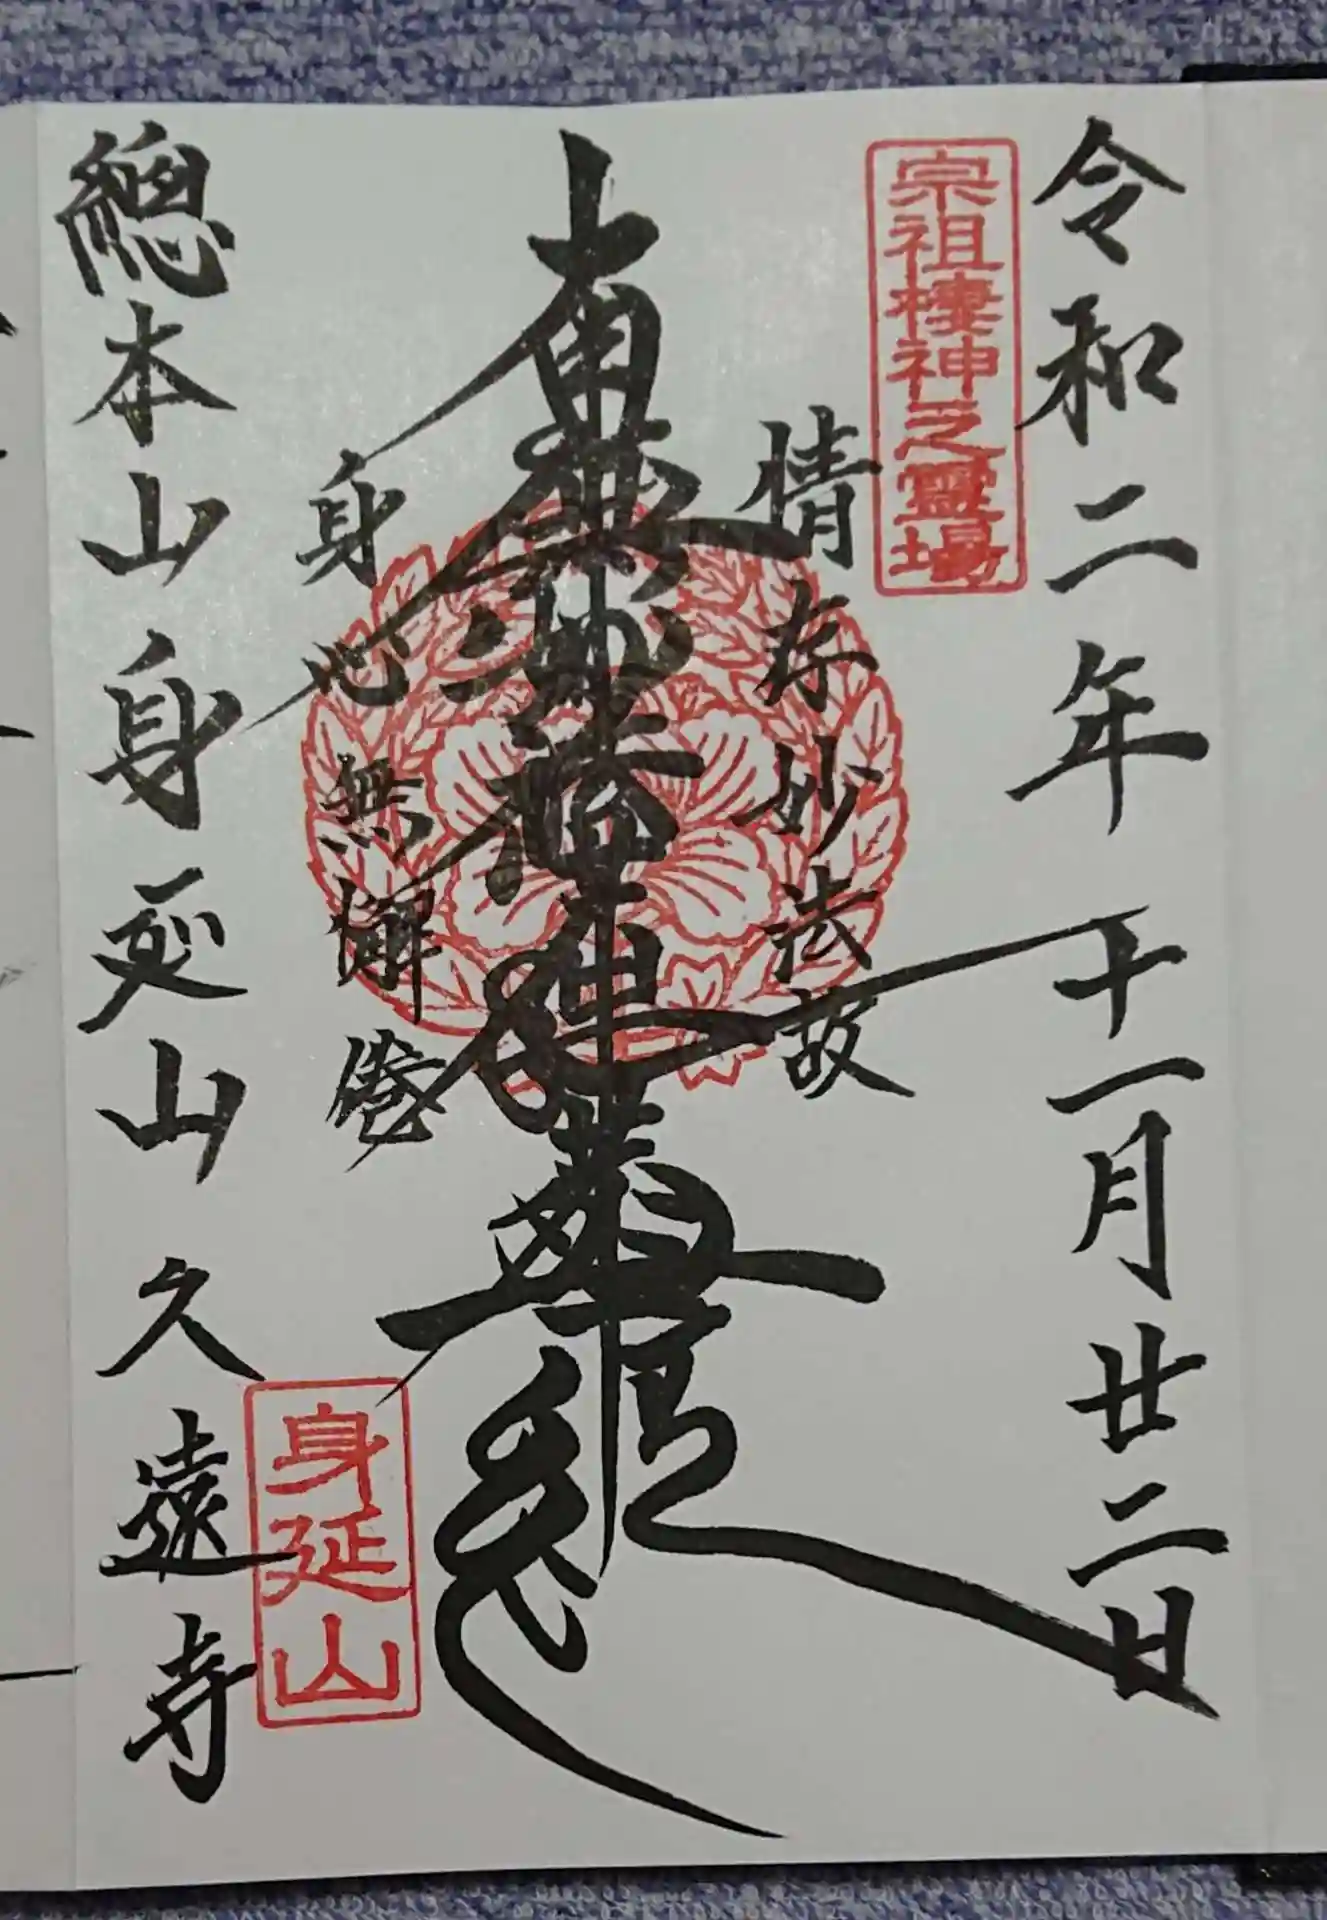 令和二年十一月廿二日
宗祖棲神之霊場
情存妙法故
南無妙法蓮華経
身心無懈倦
身延山
總本山身延山久遠寺